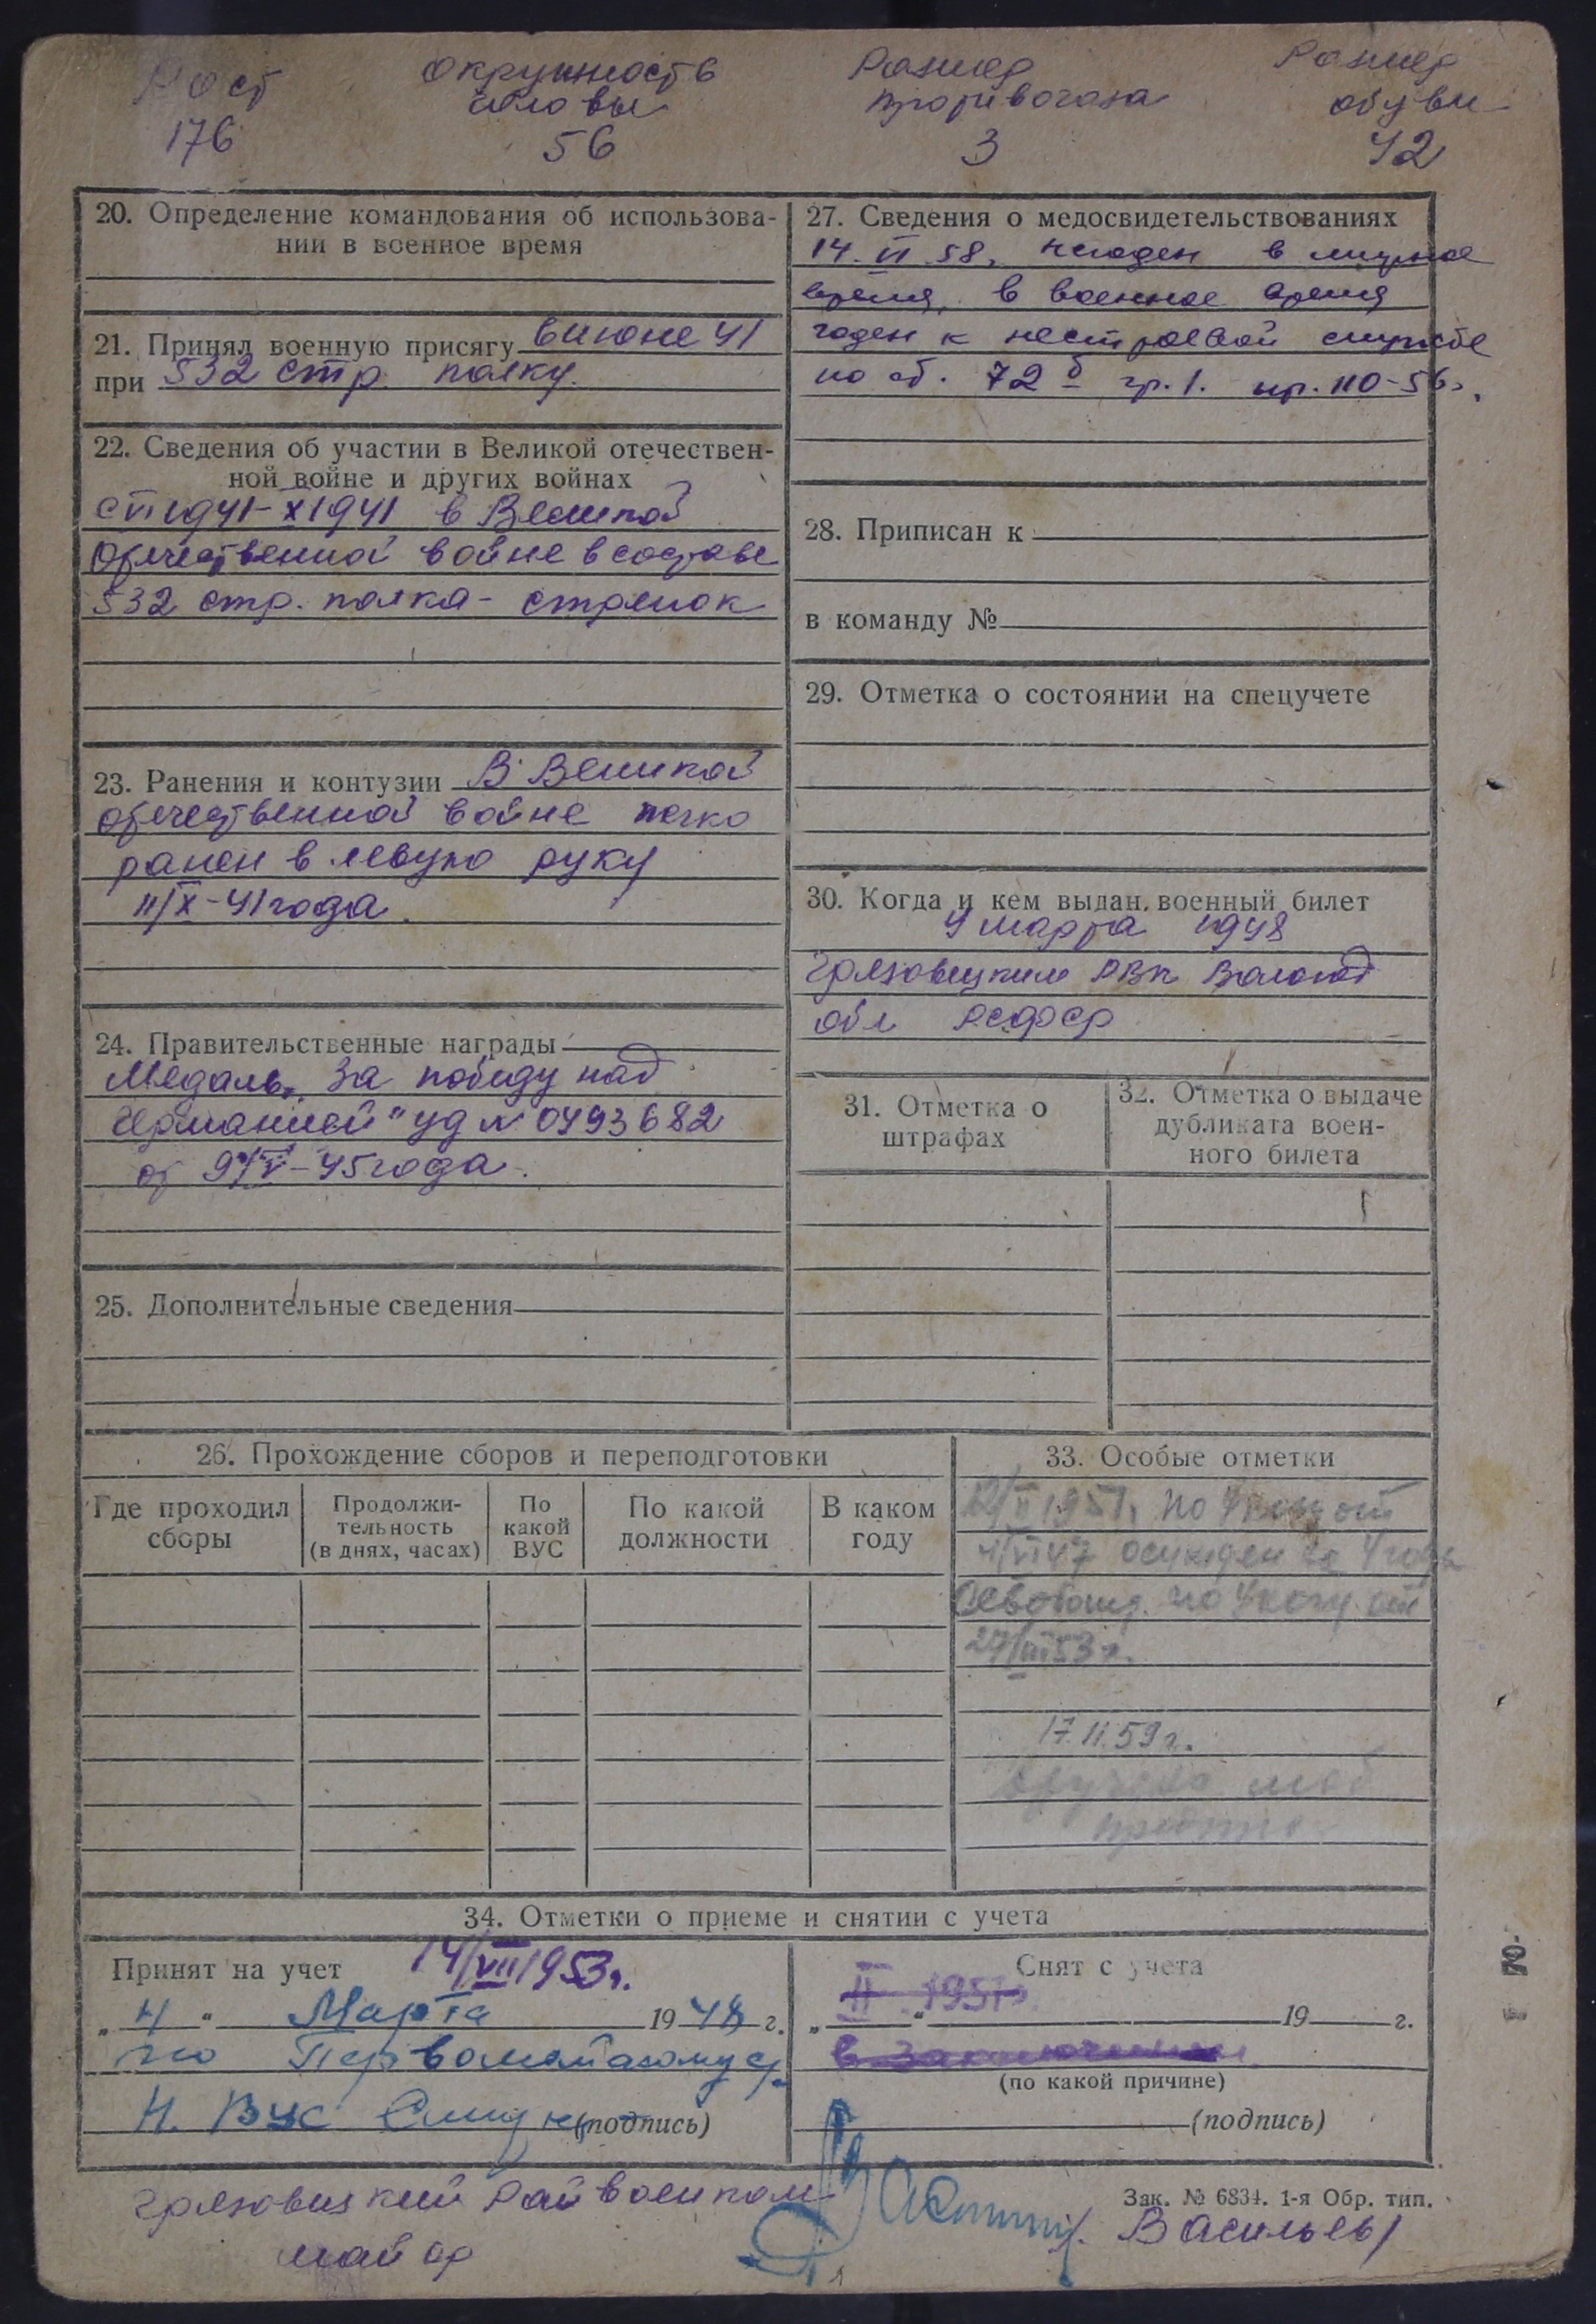 Рост Окружность Размер Размер
головы противогаза обуви
176 56 3 42
20. Определение командования об использова-
нии в военное время
21. Принял военную присягу в июне 41
при 532 стр. полку.
22. Сведения об участии в Великой отечествен-
ной войне и других войнах
с VI 1941 - X 1941 в Великой
Отечественной войне в составе
532 стр. полка - стрелок
23. Ранения и контузии В Великой
отечественной войне легко
ранен в левую руку
11/X-41 года.
24. Правительственные награды
Медаль „За победу над
Германией" уд № 0493682
от 9/V-45 года.
25. Дополнительные сведения
27. Сведения о медосвидетельствованиях
14. VI 58. Негоден в мирное
время, в военное время
годен к нестроевой службе
по ст. 72 б гр. 1. пр. 110-56г.
28. Приписан к
в команду №
29. Отметка о состоянии на спецучете
30. Когда и кем выдан военный билет
4 марта 1948
Грязовецким РВК Вологод
обл РСФСР
31. Отметка о
штрафах
32. Отметка о выдаче
дубликата воен-
ного билета
26. Прохождение сборов и переподготовки
Где проходил
сборы
Продолжи-
тельность
(в днях, часах)
По
какой
ВУС
По какой
должности
В каком
году
33. Особые отметки
II 1951г. по Указу от
4/VI 47 осужден на 4 года
Освобожд. по Указу от
27/III 53 г.
17.II.59 г.
34. Отметки о приеме и снятии с учета
Принят на учет 14/VII 1953г.
„ 4 " Марта 1948 г.
по Первомайскому с/
Н. ВУС (подпись)
Снят с учета
II 1951г.
„ " 19 г.
в заключении
(по какой причине)
(подпись)
Грязовецкий Райвоенком
майор Васильев/
Зак. № 6834. 1-я Обр. тип.